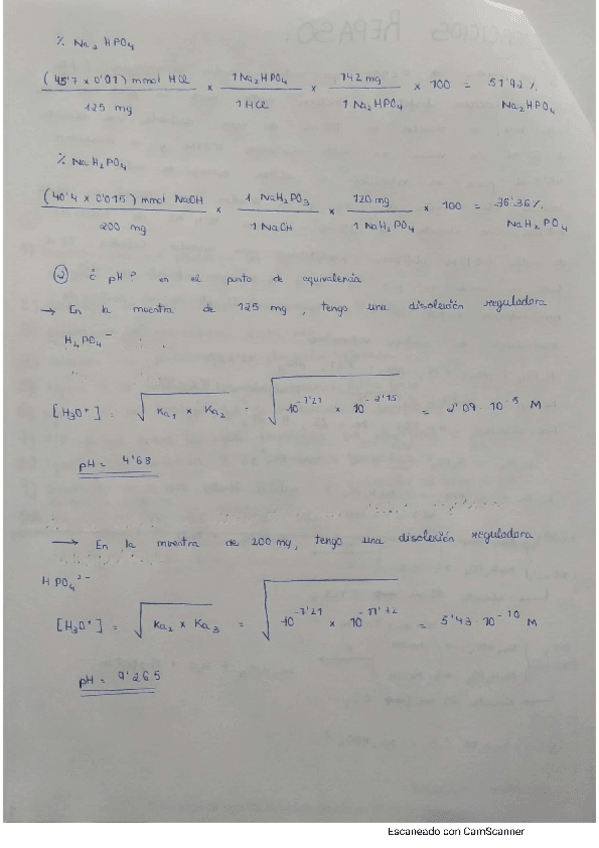 % Na2HPO4
(45'7 x 0'01) mmol HCl / 125 mg x 1 Na2HPO4 / 1 HCl x 142 mg / 1 Na2HPO4 x 100 = 51'92 % Na2HPO4
% NaH2PO4
(40'4 x 0'015) mmol NaOH / 200 mg x 1 NaH2PO3 / 1 NaOH x 120 mg / 1 NaH2PO4 x 100 = 36'36 % NaH2PO4
② ¿ pH? en el punto de equivalencia
→ En la muestra de 125 mg, tengo una disolución reguladora
H2PO4⁻
[H3O⁺] = √(Ka1 x Ka2) = √(10^-7'21 x 10^-2'15) = 2'09 · 10^-5 M
pH = 4'68
→ En la muestra de 200 mg, tengo una disolución reguladora
HPO4²⁻
[H3O⁺] = √(Ka2 x Ka3) = √(10^-7'21 x 10^-11'32) = 5'43 · 10^-10 M
pH = 9'265
Escaneado con CamScanner